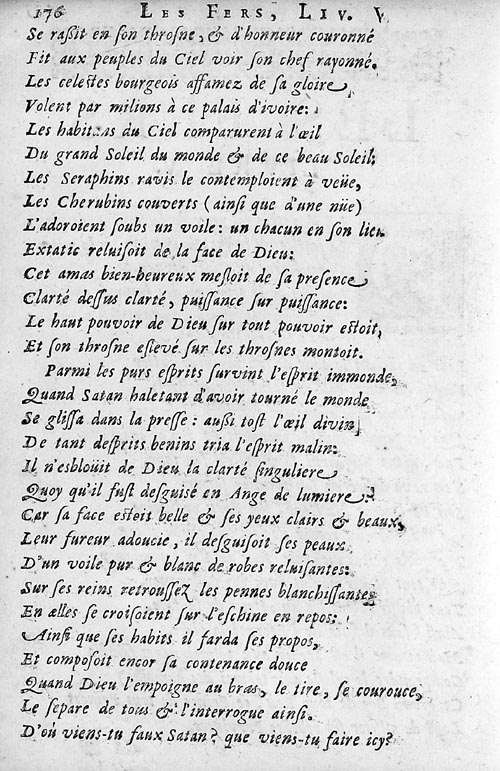 176 LES FERS, LIV. V
Se raſſit en ſon throſne, & d'honneur couronné
Fit aux peuples du Ciel voir ſon chef rayonné.
Les celeſtes bourgeois affamez de ſa gloire,
Volent par milions à ce palais d'ivoire:
Les habitans du Ciel comparurent à l'œil
Du grand Soleil du monde & de ce beau Soleil;
Les Seraphins ravis le contemploient à veüe,
Les Cherubins couverts (ainſi que d'une nüe)
L'adoroient ſoubs un voile: un chacun en ſon lieu
Extatic reluiſoit de la face de Dieu:
Cet amas bien-heureux meſloit de ſa preſence
Clarté deſſus clarté, puiſſance ſur puiſſance:
Le haut pouvoir de Dieu ſur tout pouvoir eſtoit,
Et ſon throſne eſlevé ſur les throſnes montoit.
Parmi les purs eſprits ſurvint l'eſprit immonde,
Quand Satan haletant d'avoir tourné le monde
Se gliſſa dans la preſſe: auſſi toſt l'œil divin
De tant deſprits benins tria l'eſprit malin:
Il n'esbloüit de Dieu la clarté ſinguliere
Quoy qu'il fuſt deſguisé en Ange de lumiere:
Car ſa face eſtoit belle & ſes yeux clairs & beaux,
Leur fureur adoucie, il deſguiſoit ſes peaux
D'un voile pur & blanc de robes reluiſantes:
Sur ſes reins retrouſſez les pennes blanchiſſantes
En ælles ſe croiſoient ſur l'eſchine en repos:
Ainſi que ſes habits il farda ſes propos,
Et compoſoit encor ſa contenance douce
Quand Dieu l'empoigne au bras, le tire, ſe courouce,
Le ſepare de tous & l'interrogue ainſi.
D'où viens-tu faux Satan? que viens-tu faire icy?